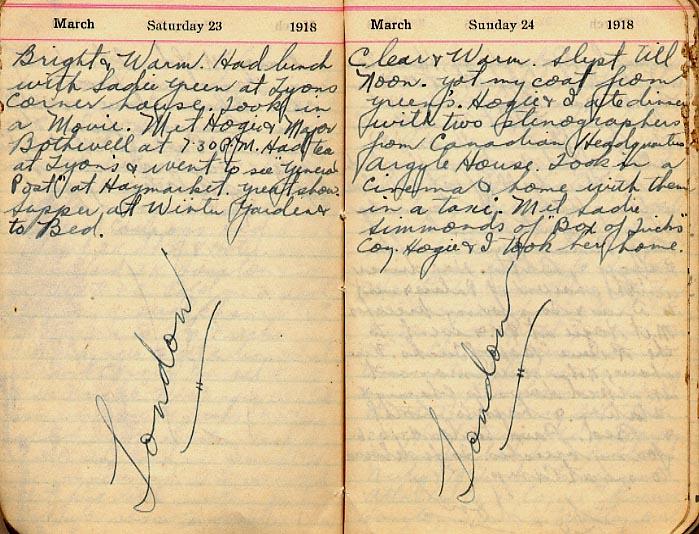 March Saturday 23 1918
Bright & Warm. Had lunch
with Sadie Green at Lyons
Corner house. Took in
a Movie. Met Hogie & Major
Bothwell at 7:30 P.M. Had tea
at Lyon's & went to see "General
Post" at Haymarket. great show.
Supper at Winter Garden &
to Bed.
London
March Sunday 24 1918
Clear & Warm. Slept till
Noon. got my coat from
Green's. Hogie & I ate dinner
with two stenographers
from Canadian Headquarters
Argyle House. Took in a
Cinema & home with them
in a taxi. Met Sadie
Simmonds of "Box of Tricks"
Coy. Hogie & I took her home.
London